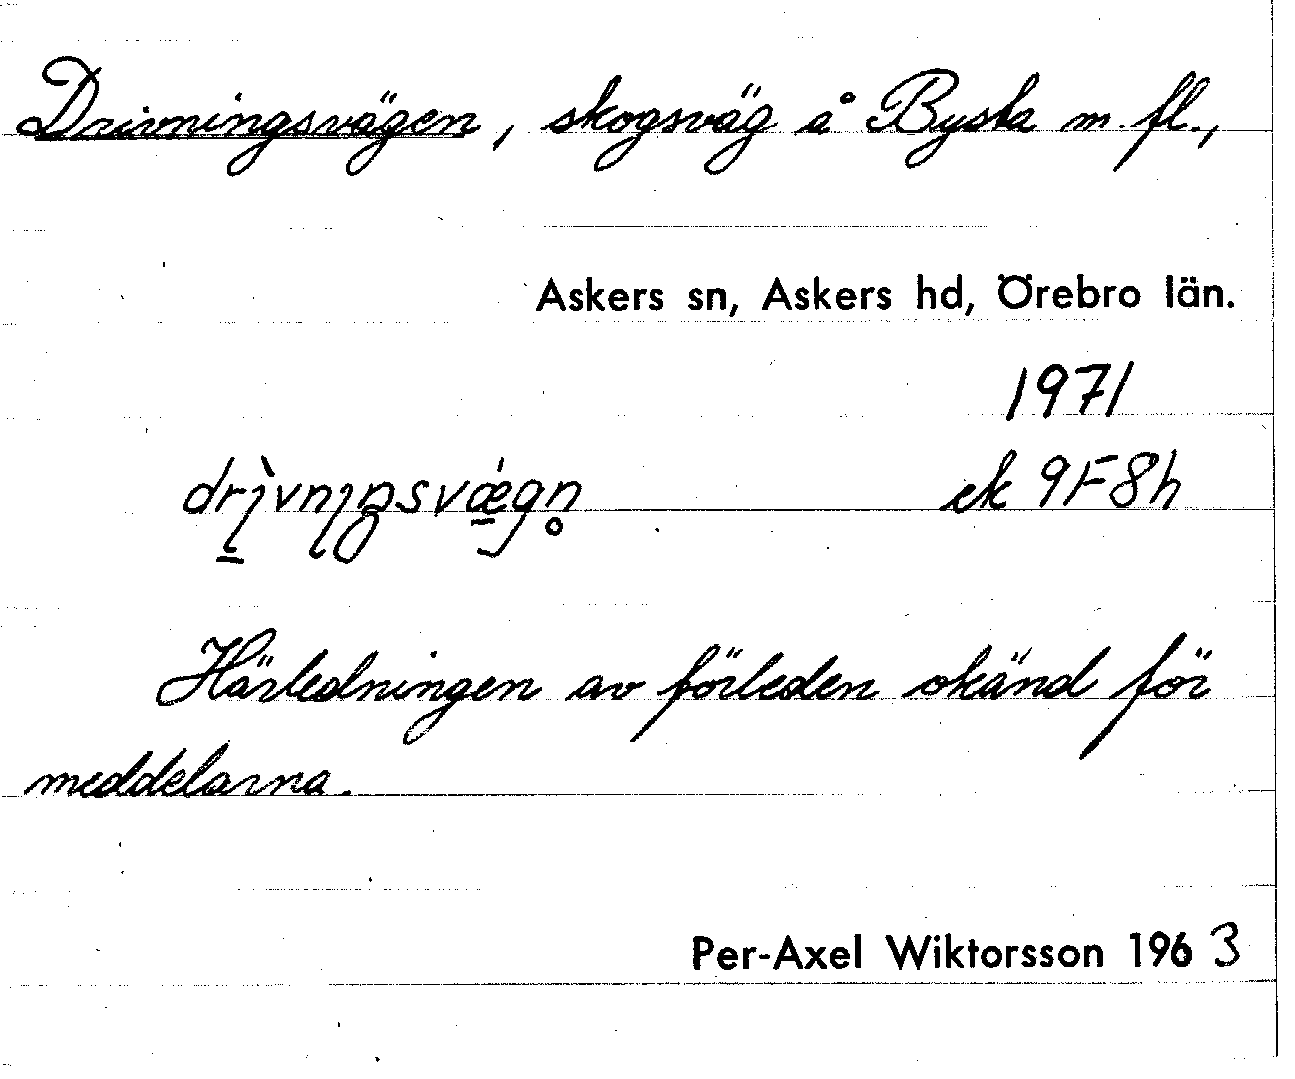 Drivningsvägen, skogsväg å Bysta m. fl.,
Askers sn, Askers hd, Örebro län.
1971
drìvnıŋsvǽgn̥ ek 9F8h
Härledningen av förleden okänd för
meddelarna.
Per-Axel Wiktorsson 1963